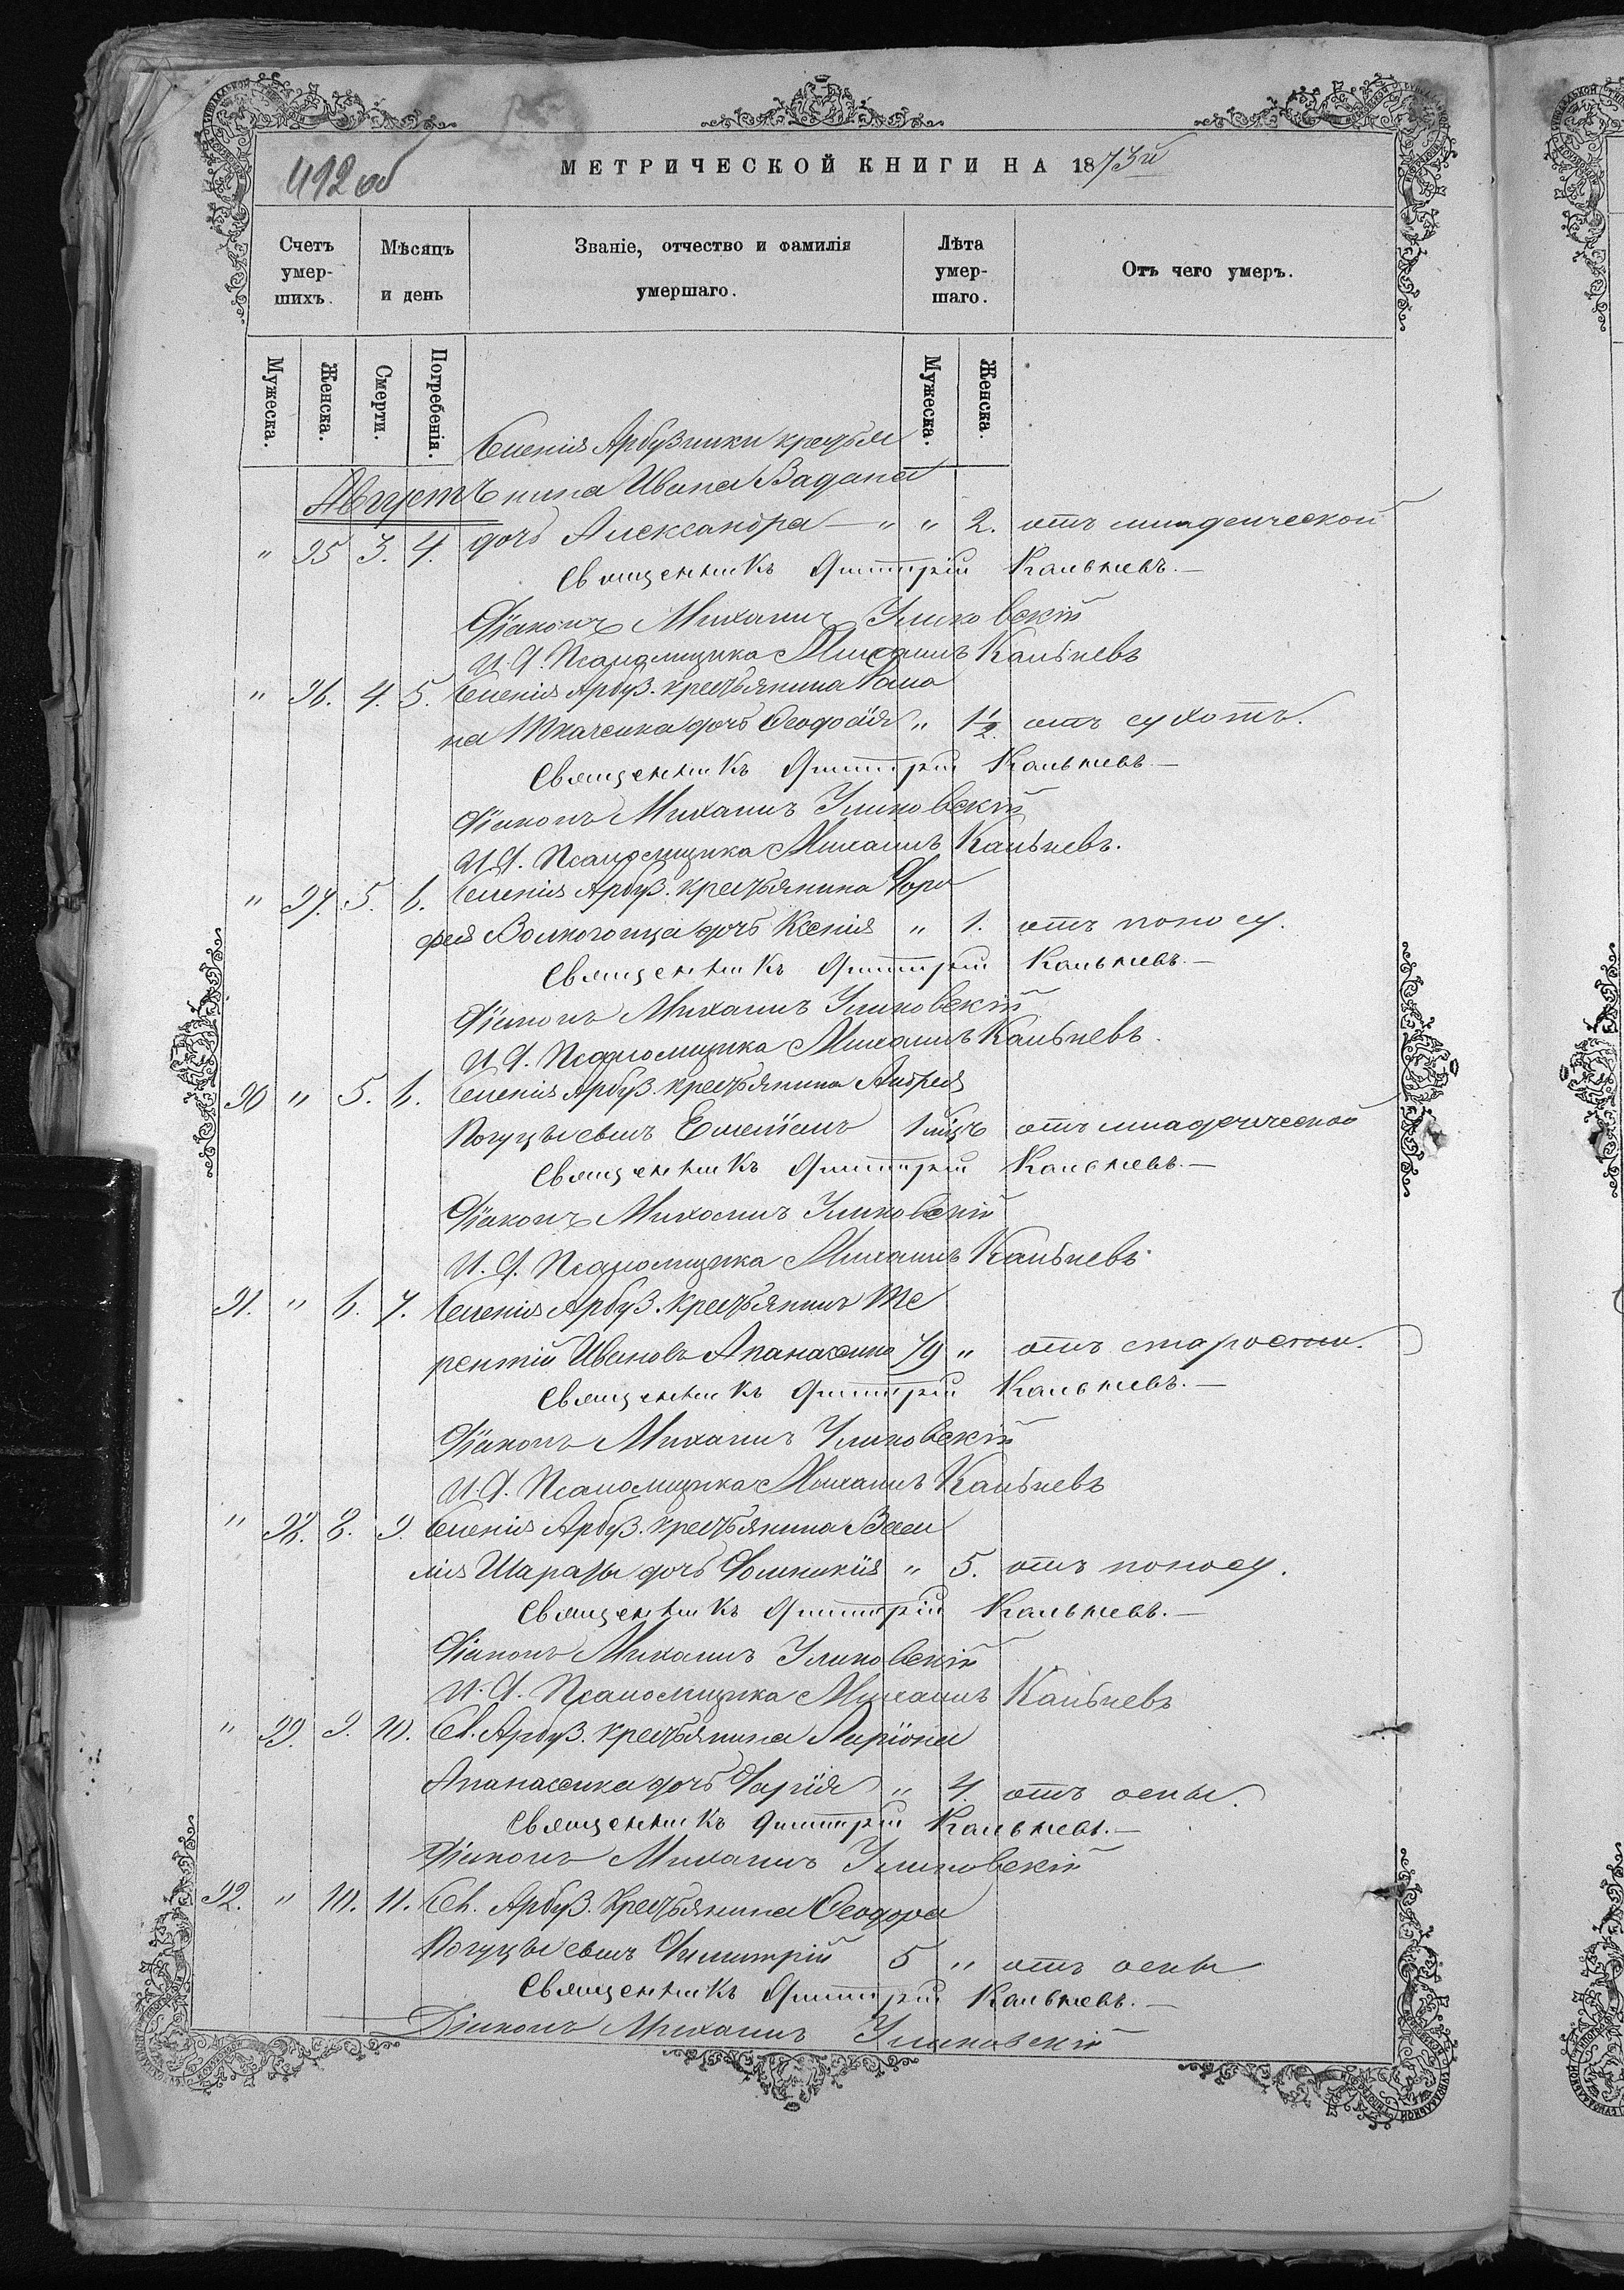 492 об
МЕТРИЧЕСКОЙ КНИГИ НА 1873й
Счетъ умер- шихъ.
Мѣсяцъ и день
Званіе, отчество и фамилія умершаго.
Лѣта умер- шаго.
Отъ чего умеръ.
Мужеска. Женска. Смерти. Погребенія. Мужеска. Женска.
Селенія Арбузинки крестья
Августъ нина Ивана Вадана
" 25 3. 4. дочь Александра — " " 2. отъ младенческой
Священникъ Димитрій Кальневъ.—
Діаконъ Михаилъ Улиховскій
И. Д. Псаломщика Михаилъ Кальневъ
" 26. 4. 5. Селенія Арбуз. крестьянина Рома
на Ткаченка дочь Ѳеодосія " 1½ отъ сухотъ.
Священникъ Димитрій Кальневъ.—
Діаконъ Михаилъ Улиховскій
И. Д. Псаломщика Михаилъ Кальневъ.
" 27. 5. 6. Селенія Арбуз. крестьянина Доро
фея Волкогонца дочь Ксенія " 1. отъ поносу.
Священникъ Димитрій Кальневъ.—
Діаконъ Михаилъ Улиховскій
И. Д. Псаломщика Михаилъ Кальневъ.
30 " 5. 6. Селенія Арбуз. крестьянина Андрея
Когуцы сынъ 1 мѣцъ отъ младенческой
Священникъ Димитрій Кальневъ.—
Діаконъ Михаилъ Улиховскій
И. Д. Псаломщика Михаилъ Кальневъ.
31. " 6. 7. Селенія Арбуз. крестьянинъ Те
рентій Ивановъ Апанасенко 79 " отъ старости.
Священникъ Димитрій Кальневъ.—
Діаконъ Михаилъ Улиховскій
И. Д. Псаломщика Михаилъ Кальневъ
" 28. 8. 9. Селенія Арбуз. крестьянина Васи
лія дочь Домникія " 5. отъ поносу.
Священникъ Димитрій Кальневъ.—
Діаконъ Михаилъ Улиховскій
И. Д. Псаломщика Михаилъ Кальневъ
" 29. 9. 10. Сел. Арбуз. крестьянина Ларіона
Апанасенка дочь Дарія " 4. отъ оспы.
Священникъ Димитрій Кальневъ.—
Діаконъ Михаилъ Улиховскій
32. " 10. 11. Сел. Арбуз. Крестьянина Ѳеодора
Когуцы сынъ Димитрій 5 " отъ оспы
Священникъ Димитрій Кальневъ.—
Діаконъ Михаилъ Улиховскій